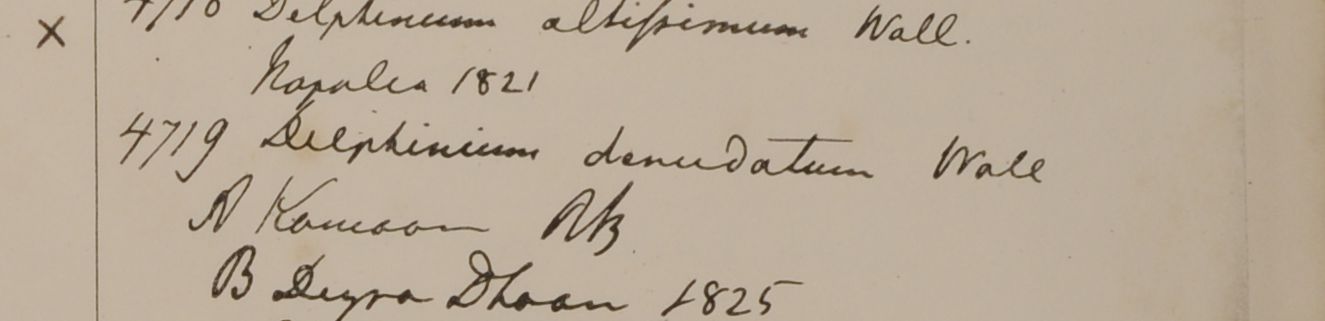 × 4718 Delphinium altissimum Wall.
Napalia 1821
4719 Delphinium denudatum Wall
A Kamaon RB
B Deyra Dhoon 1825